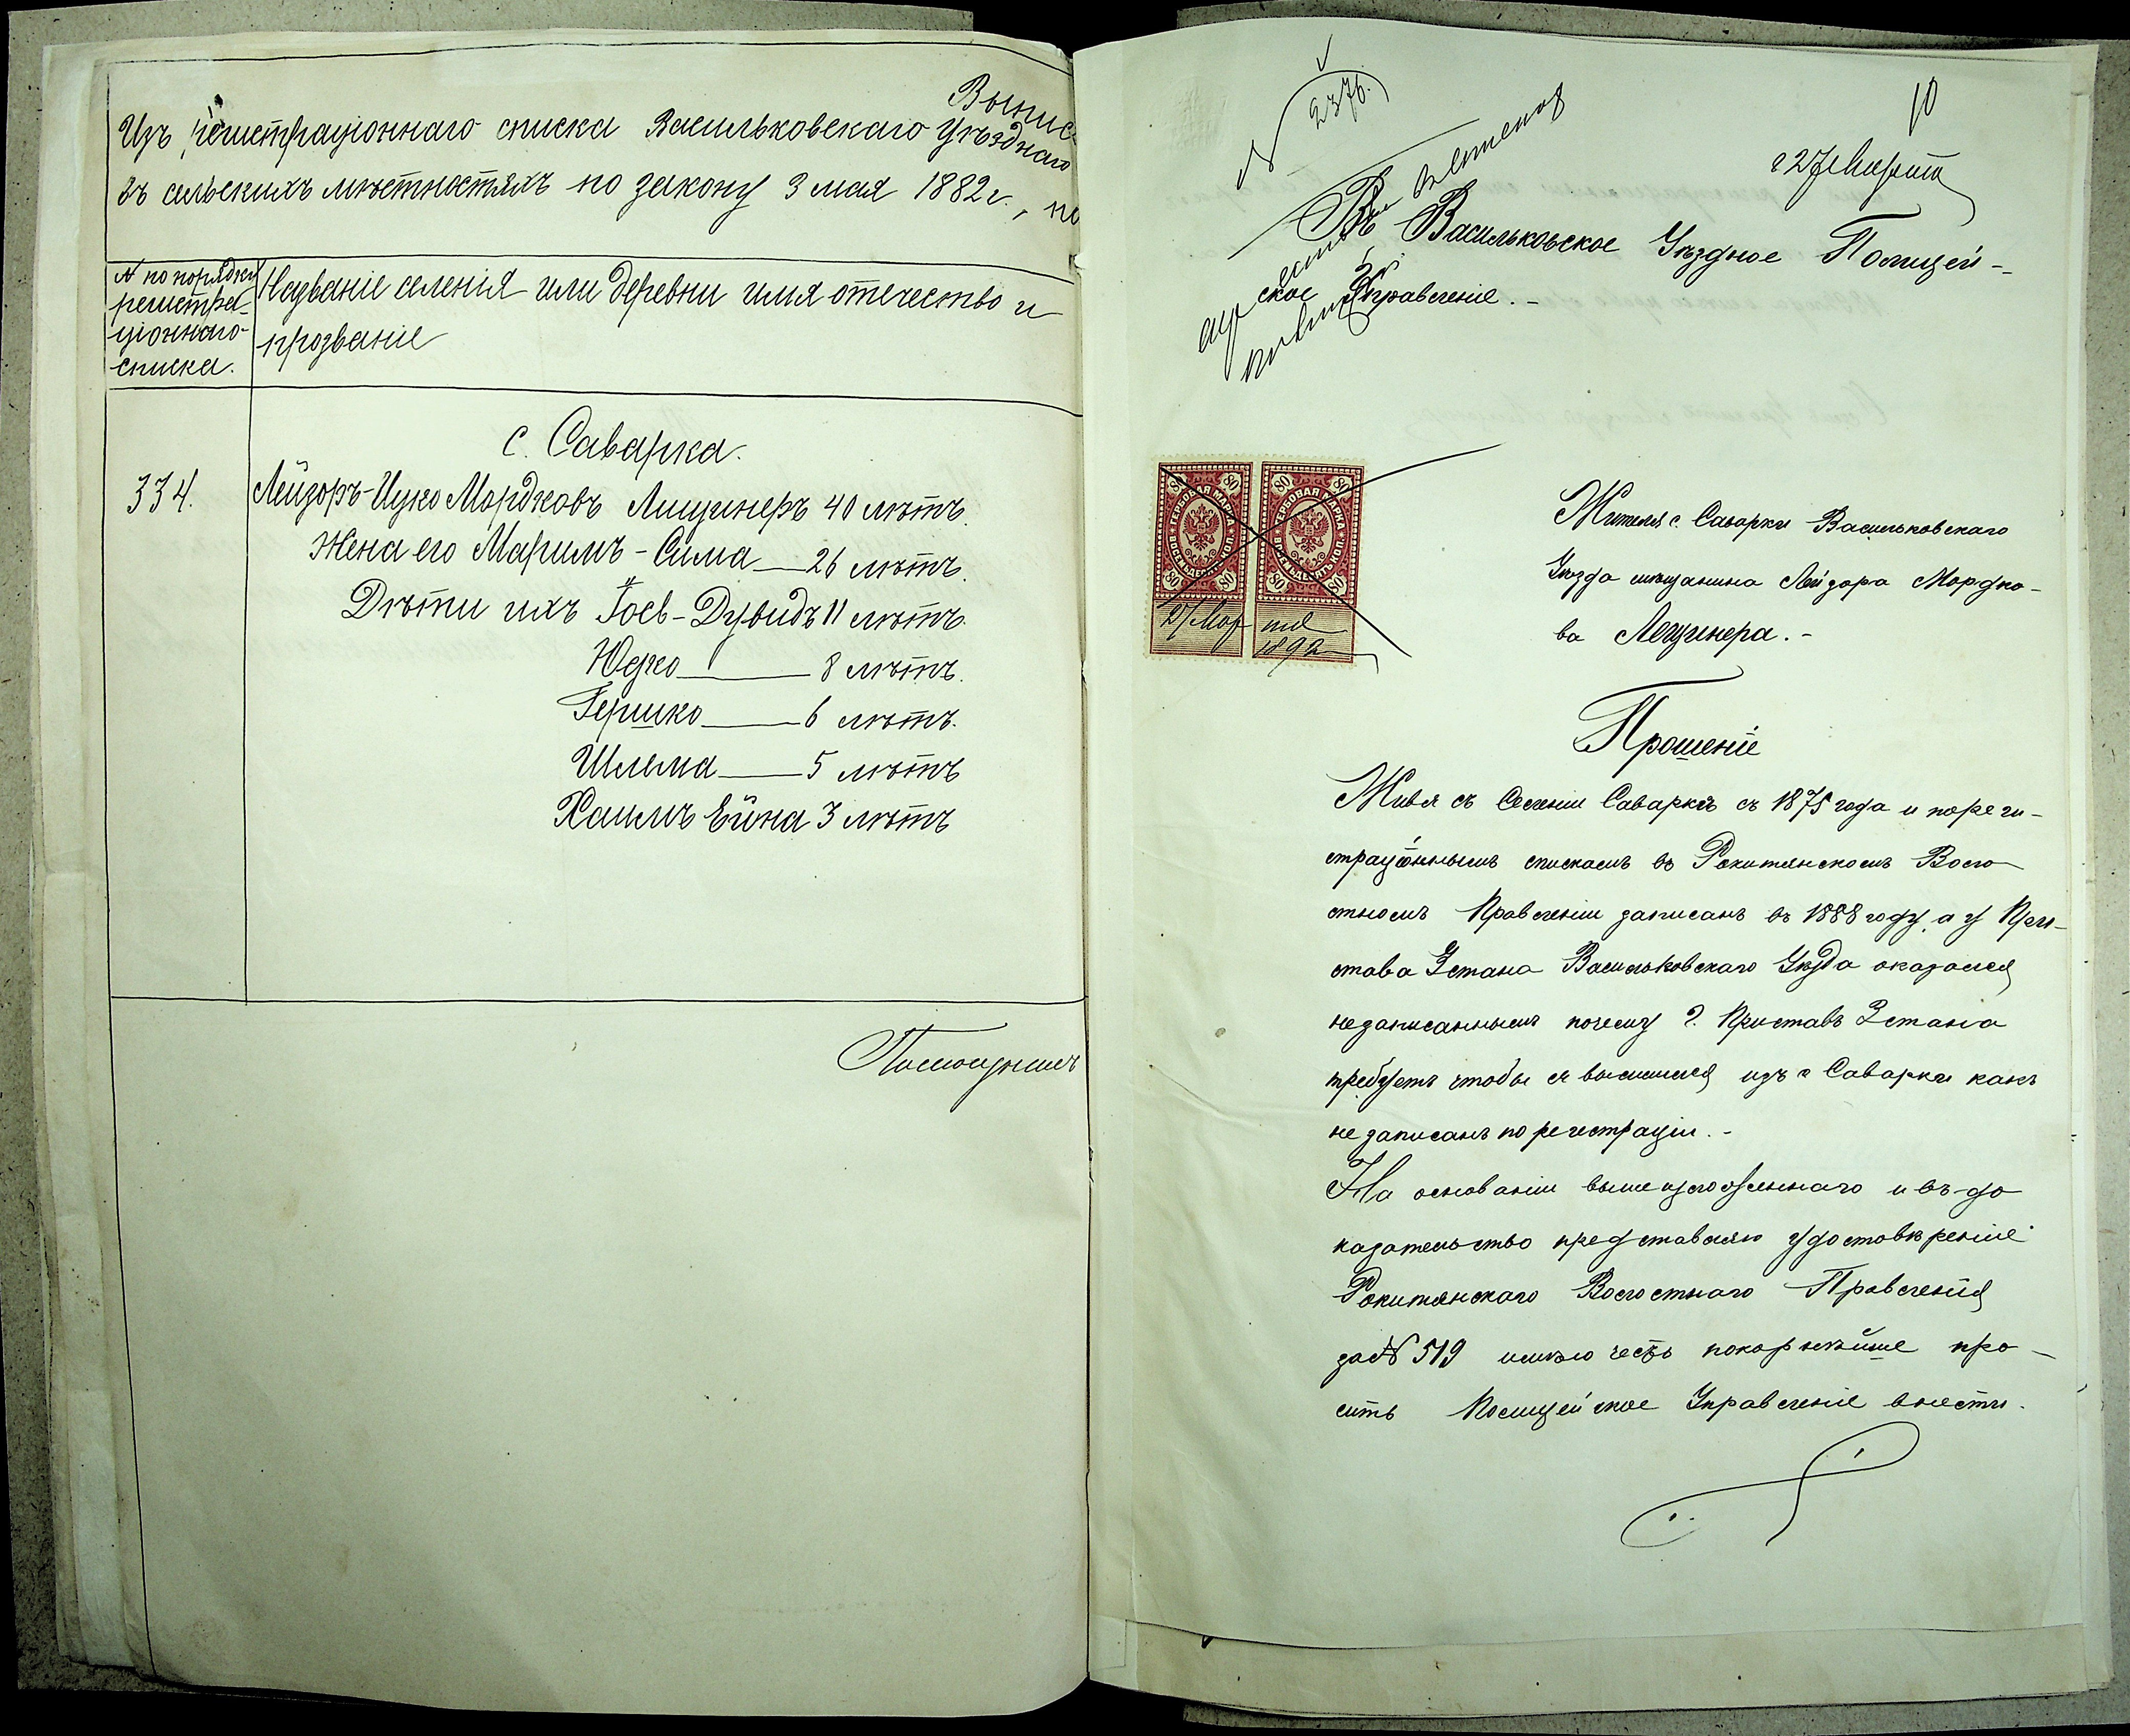 Выпис
Изъ регистраціоннаго списка Васильковскаго Уѣзднаго
въ сельскихъ мѣстностяхъ по закону 3 мая 1882 г., по
№ по порядку
регистра-
ціоннаго
списка.
Названіе селенія или деревни имя отечество и
прозваніе
с. Саварка.
334.
Лейзоръ-Ицко Мордковъ Лищинеръ 40 лѣтъ.
Жена его Маримъ-Сима 26 лѣтъ.
Дѣти ихъ Іосъ-Дувидъ 11 лѣтъ.
Юдко 8 лѣтъ.
Гершко 6 лѣтъ.
Шлема 5 лѣтъ
Хаимъ Ейна 3 лѣтъ
Помощникъ
№ 2376.
10
27 Марта
Въ Васильковское Уѣздное Полицей-
ское Управленіе.-
80 80 ГЕРБОВАЯ МАРКА ВОСЕМЬДЕСЯТЪ КОП. 80 80
80 80 ГЕРБОВАЯ МАРКА ВОСЕМЬДЕСЯТЪ КОП. 80 80
27 Мар та
1892
Жителя с. Саварки Васильковскаго
Уѣзда мѣщанина Лейзора Мордко-
ва Лещинера.-
Прошеніе
Живя съ Селеніи Саваркѣ съ 1875 года и пореги-
страціоннымъ спискамъ въ Рокитянскомъ Воло
стномъ Правленіи записанъ въ 1888 году, а у При-
става 3 стана Васильковскаго Уѣзда оказался
незаписаннымъ почему г. Приставъ 3 стана
требуетъ чтобы я выселился изъ с Саварки какъ
не записанъ по регестраціи.-
На основаніи вышеизложеннаго и въ-до
казательство представляю удостовѣреніе
Рокитянскаго Волостнаго Правленія
за № 519 имѣю честь покорнѣйше про-
сить Полицейское Управленіе внести.